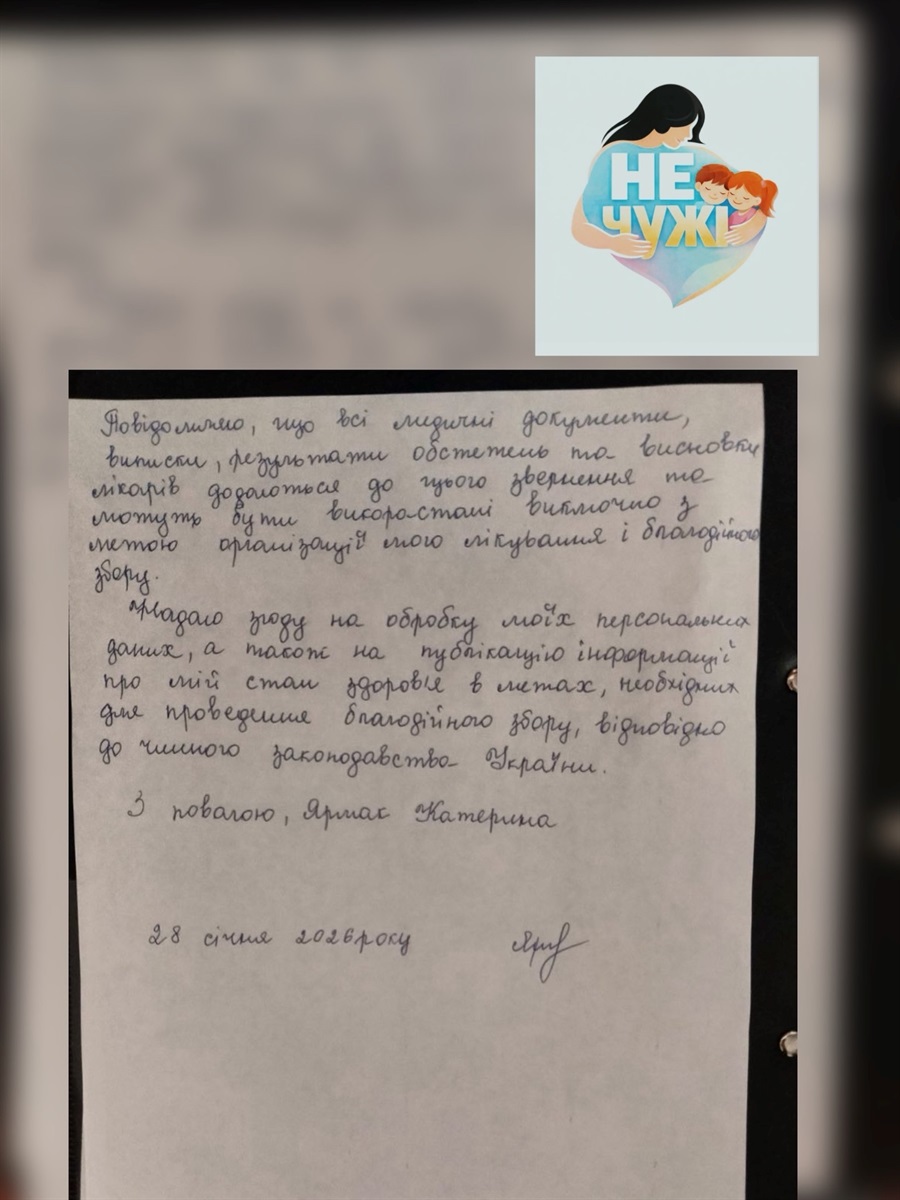 НЕ
ЧУЖІ
Повідомляю, що всі медичні документи,
виписки, результати обстежень та висновки
лікарів додаються до цього звернення та
можуть бути використані виключно з
метою організації мого лікування і благодійного
збору.
Надаю згоду на обробку моїх персональних
даних, а також на публікацію інформації
про мій стан здоров'я в межах, необхідних
для проведення благодійного збору, відповідно
до чинного законодавства України.
З повагою, Ярмак Катерина
28 січня 2026 року